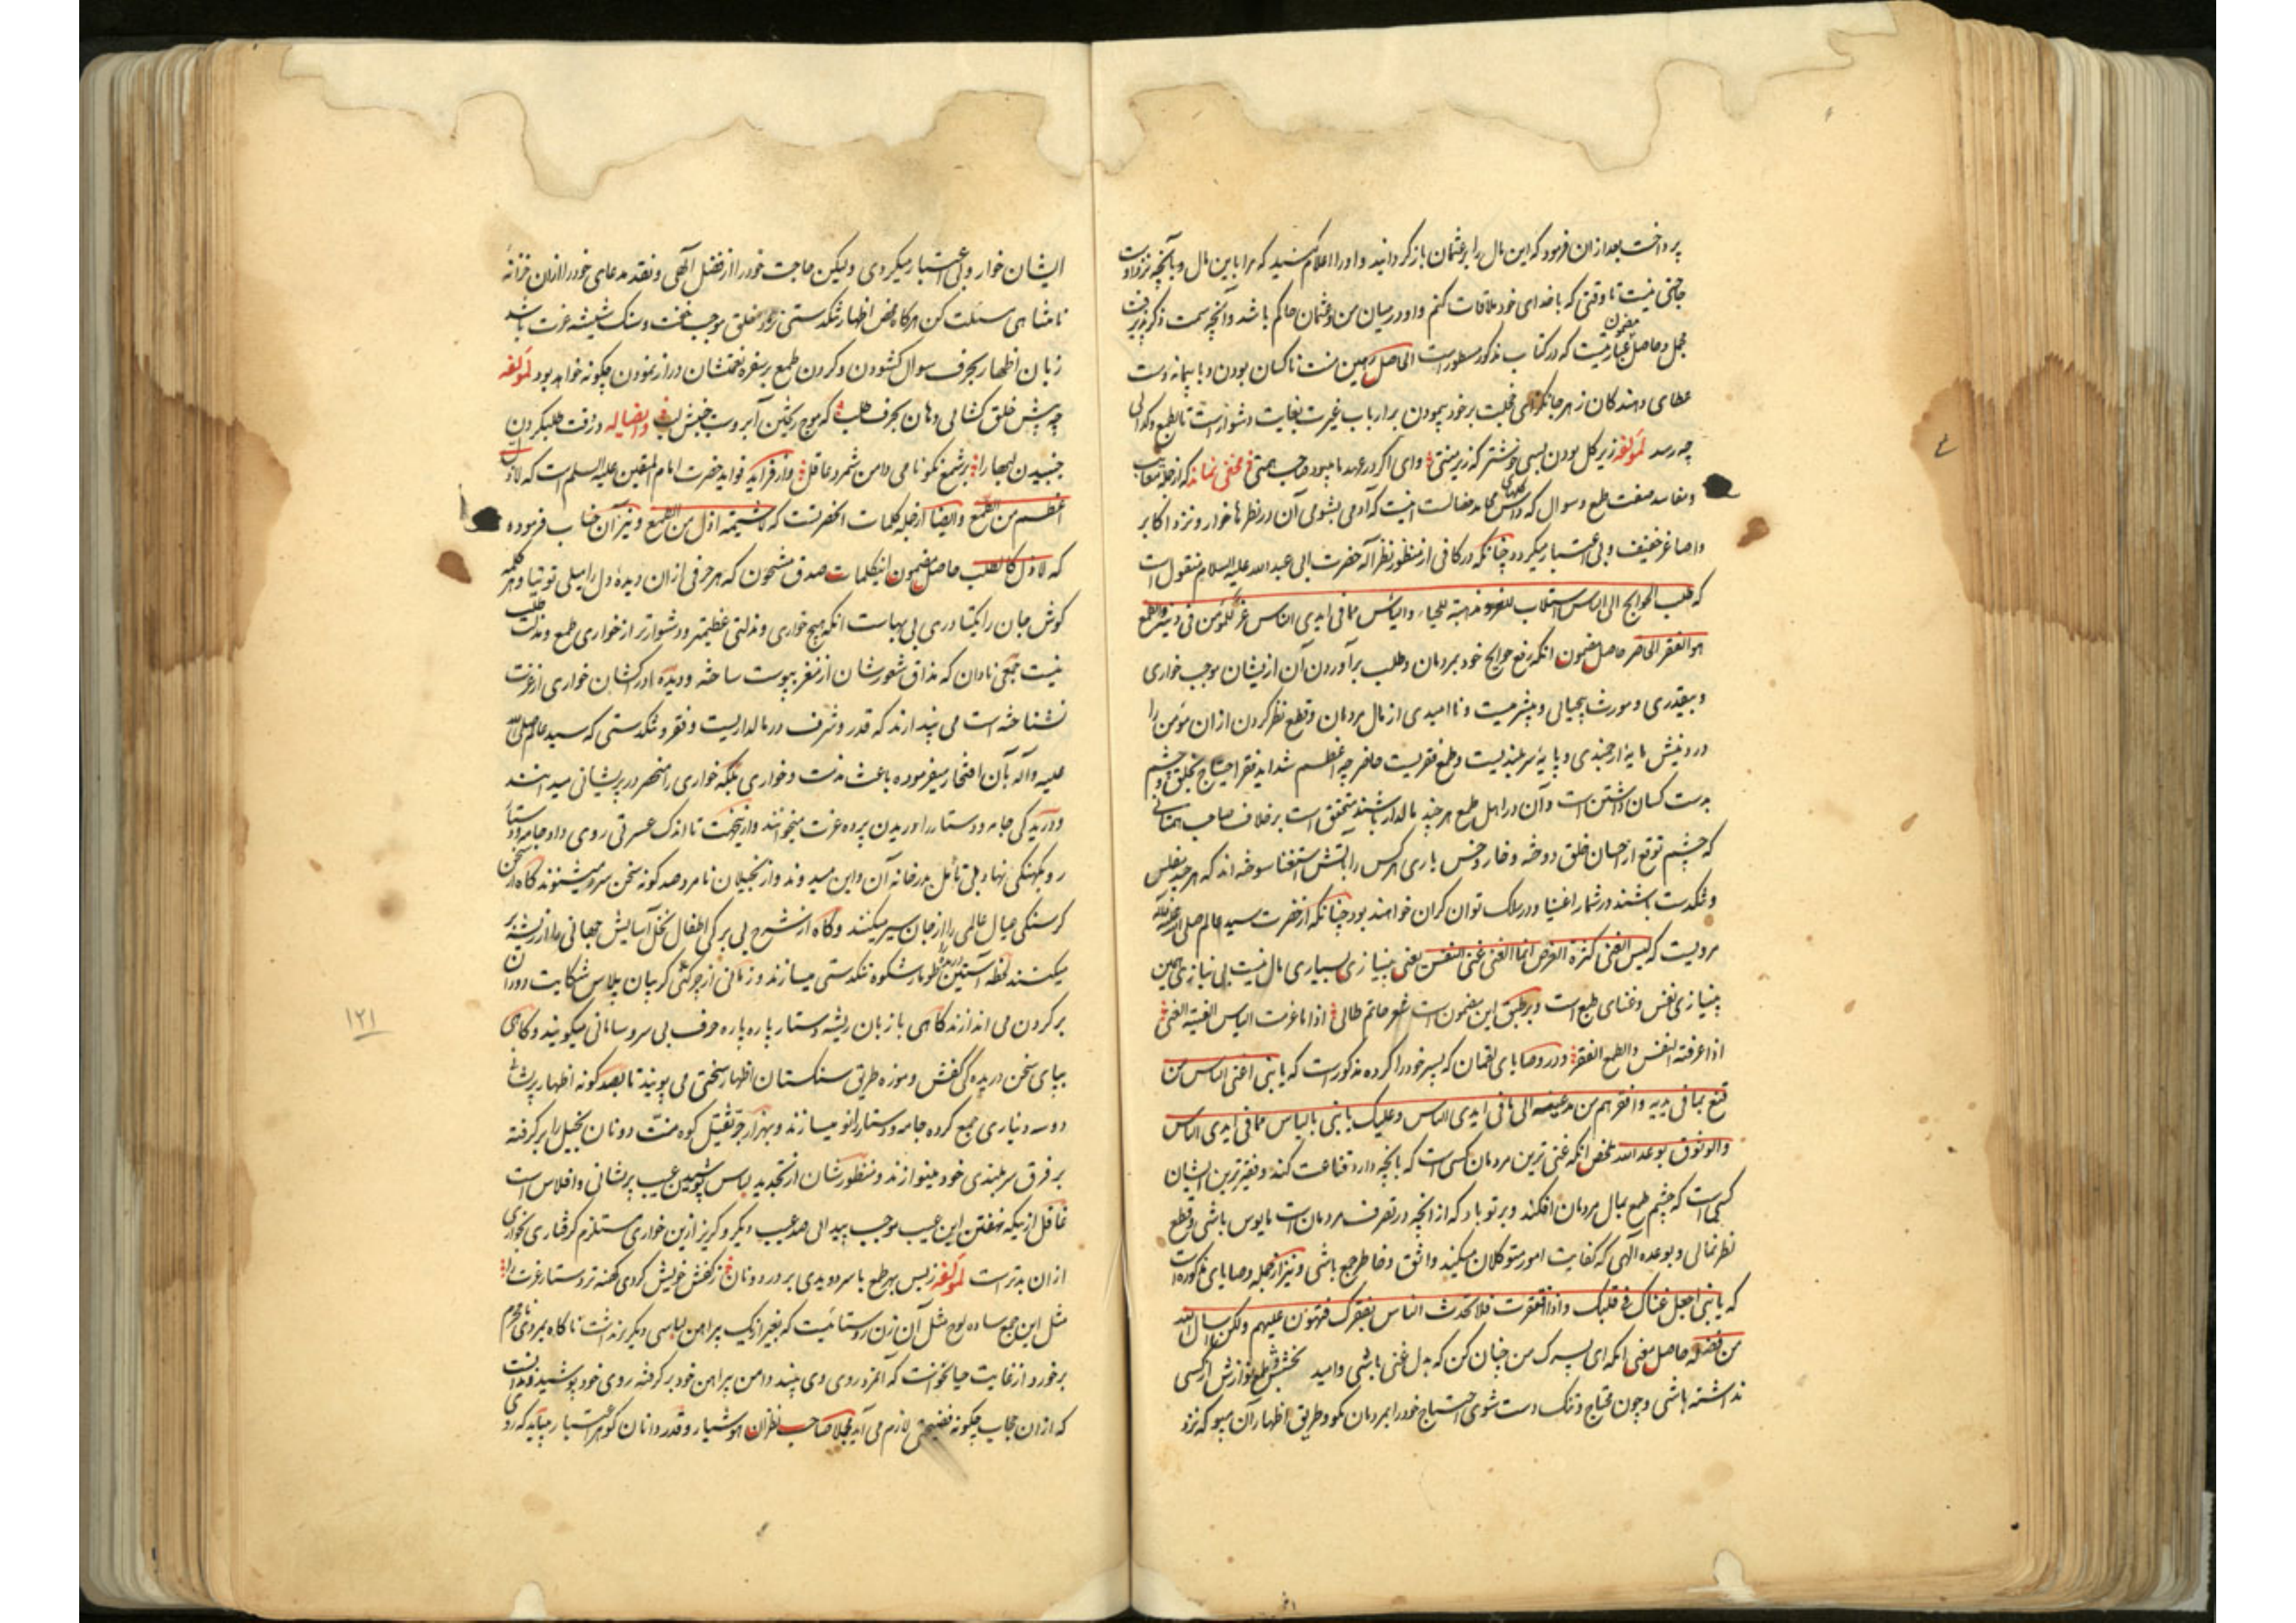 پرداخت بعد ازان فرمود که این مال را بر عثمان باز گردانید و او را اعلام کنید که مرا باین مال و بآنچه نزد اوست
حاجتی نیست تا وقتی که با خدای خود ملاقات کنم و او در میان من و عثمان حاکم باشد و آنچه سمت ذکر پذیرفت
مجمل و حاصل مضمون عبارتیست که در کتاب مذکور مسطور است الحاصل رهین منت ناکسان بودن و با پیمانه دست
عطای دهندگان زهر جانگزای خجلت بر خود پیمودن بر ارباب غیرت بغایت دشوار است تا بطمع و گدائی
چه رسد لمؤلفه زیر گل بودن بسی خوشتر که زیر منتی وای اگر در عهد ما میبود صاحب همتی مخفی نماند که از جمله معایب
و مفاسد صفت طمع و سوال که داس گلهای محامد خصالست اینست که آدمی بشومی آن در نظرها خوار و نزد اکابر
و اصاغر خفیف و بی اعتبار میگردد چنانکه در کافی از منظور نظر آله حضرت ابی عبد الله علیه السلام منقول است
که طلب الحوایج الی الناس استلاب للعز و مذهبة للحیاء و الیأس مما فی ایدی الناس عز للمؤمن فی دینه و الطمع
هو الفقر الحاضر حاصل مضمون انکه رفع حوایج خود بمردمان و طلب برآوردن آن ازیشان موجب خواری
و بیقدری و مورث بیحیائی و بیشرمیست و ناامیدی از مال مردمان و قطع نظر کردن ازان مؤمن را
در دینش مایهٔ ارجمندی و پایهٔ سربلندیست و طمع فقریست حاضر چه اعظم شداید فقر احتیاج بخلق و چشم
بدست کسان داشتن است و آن در اهل طمع هر چند مالدار باشند متحقق است بر خلاف صاحب همتانی
که چشم توقع از احسان خلق دوخته و خار و خس یاری هر کس را بآتش استغنا سوخته اند که هر چند مفلس
و تنگدست باشند در شمار اغنیا و در سلک توان گران خواهند بود چنانکه از حضرت سید عالم صلی الله علیه و آله
مرویست که لیس الغنی کثرة العرض انما الغنی غنی النفس یعنی بینیازی ببسیاری مال نیست بی نیازی همین
بینیازی نفس و غنای طبع است و بر طبق این مضمون است شعر حاتم طائی اذا ما عزمت الیأس الفیته الغنی
اذا عرفته النفس و الطمع الفقر و در وصایای لقمان که پسر خود را کرده مذکور است که یا بنی اغنی الناس من
قنع بما فی یدیه و افقرهم من مد عینیه الی ما فی ایدی الناس و علیک یا بنی بالیاس مما فی ایدی الناس
و الوثوق بوعد الله ملخص انکه غنی ترین مردمان کسی است که بآنچه دارد قناعت کند و فقیرترین ایشان
کسی است که چشم طمع بمال مردمان افکند و بر تو باد که از آنچه در تصرف مردمان است مایوس باشی و قطع
نظر نمائی و بوعده آلهی که کفایت امور متوکلان میکند واثق و خاطر جمع باشی و نیز از جمله وصایای مذکوره است
که یا بنی اجعل غناک فی قلبک و اذا افتقرت فلا تحدث الناس بفقرک فتهون علیهم ولکن اسأل الله
من فضله حاصل معنی انکه ای پسرک من چنان کن که بدل غنی باشی و امید بخشش و طمع نوازش از کسی
نداشته باشی و چون محتاج و تنک دست شوی احتیاج خود را بمردمان مگو و طریق اظهار آن مپو که نزد
ایشان خوار و بی اعتبار میگردی ولیکن حاجت خود را از فضل آلهی و نقد مدعای خود را ازان خزانهٔ
نامتناهی مسئلت کن هرگاه محض اظهار تنگدستی نزد خلق موجب خفت و سنک شیشه عزت باشد
زبان اظهار بحرف سوال گشودن و گردن طمع بر سفره نعمتشان دراز نمودن چگونه خواهد بود لمؤلفه
چه پیش خلق گشائی دهان بحرف طلب که موج ریختن آبروست جنبش لب و ایضا له در وقت طلب کردن
جنبیدن لبها را بر شمع نکونامی دامن شمرد عاقل و از فراید فواید حضرت امام المتقین علیه السلم است که لا ذل
اعظم من الطمع و ایضا از جمله کلمات آنحضرتست که لا شیمة اذل من الطمع و نیز آن جناب فرموده
که لا ذل کالطلب حاصل مضمون اینکلمات صدق مشحون که هر حرفی ازان دیدهٔ دل را میلی توتیا و هر کلمه
گوش جان را یکتا دری بی بهاست انکه هیچ خواری و مذلتی عظیمتر و دشوارتر از خواری طمع و مذلت طلب
نیست جمعی نادان که مذاق شعورشان از مغز بپوست ساخته و دیدهٔ ادراکشان خواری از عزت
نشناخته است می پندارند که قدر و شرف در مالداریست و فقر و تنگدستی که سید عالم صلی الله
علیه و آله بآن افتخار میفرموده باعث مذلت و خواری بلکه خواری را منحصر در پریشانی میدانند
و دریدگی جامه و دستار را دریدن پرده عزت میخوانند و ازینجهت تا اندک عسرتی روی داد جامه و دستار
رو بکهنگی نهاد بی تأمل بدر خانه آن و این میدوند و از بخیلان نامرد صد گونه سخن سرد میشنوند گاه از سخن
گرسنگی عیال عالمی را از جان سیر میکنند و گاه از شرح بی برگی اطفال نخل آسایش جهانی را از ریشه بر
میکنند لحظه آستین دریده را طومار شکوه تنگدستی میسازند و زمانی از چرکنی گریبان پلاس شکایت دوران
بر گردن می اندازند گاهی با زبان ریشه دستار پاره پاره حرف بی سر و سامانی میگویند و گاهی
بپای سخن دریده گی کفش و موزه طریق سنگستان اظهار سختی می پویند تا بصد گونه اظهار پریشانی
دو سه دیناری جمع کرده جامه و دستار را نو میسازند و بهزار جر ثقیل کوه منت دونان بخیل را بر گرفته
بر فرق سربلندی خود مینوازند و منظورشان از تجدید لباس پوشیدن عیب پریشانی و افلاس است
غافل ازینکه نهفتن این عیب موجب پیدائی صد عیب دیگر و گریز ازین خواری مستلزم گرفتاری بخواری
ازان بدتر است لمؤلفه ز بس بهر طمع با سر دویدی بر در دونان ز کفش خویش کردی کهنه تر دستار عزت را
مثل این جمع ساده لوح مثل آن زن روستائیست که بغیر از یک پیراهن لباسی دیگر برنداشت ناگاه بمردی نامحرم
برخورد از غایت حیا نخواست که آنمرد روی وی بیند دامن پیراهن خود بر گرفته روی خود پوشید و ندانست
که ازان حجاب چگونه فضیحتی لازم می آید مجملا صاحب نظران هوشیار و قدردانان گوهر اعتبار میباید که روی
۱۲۱